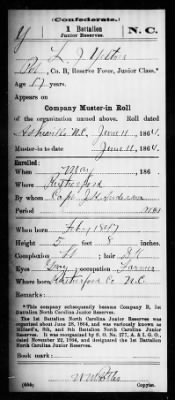 (Confederate.)
Y 1 Battalion N.C.
Junior Reserves.
L. J. Yelton
Pvt, Co. B, Reserve Force, Junior Class.*
Age 17 years.
Appears on
Company Muster-in Roll
of the organization named above. Roll dated
Asheville N.C. June 11, 1864.
Muster-in to date June 11, 1864.
Enrolled:
When May, 186
Where Rutherford
By whom Capt
Period War
When born Feby 1847
Height 5 feet 8 inches
Complexion hair
Eyes Gray Occupation Farmer
Where born Rutherford Co N.C.
REMARKS:
*This company subsequently became Company B, 1st
Battalion North Carolina Junior Reserves.
The 1st Battalion North Carolina Junior Reserves was
organized about June 28, 1864, and was variously known as
Millard's, 8th, and 9th Battalion North Carolina Junior
Reserves. It was recognized by S. O. No. 277, A. & I. G. O.,
dated November 22, 1864, and designated the 1st Battalion
North Carolina Junior Reserves.
Book mark:
Copyist.